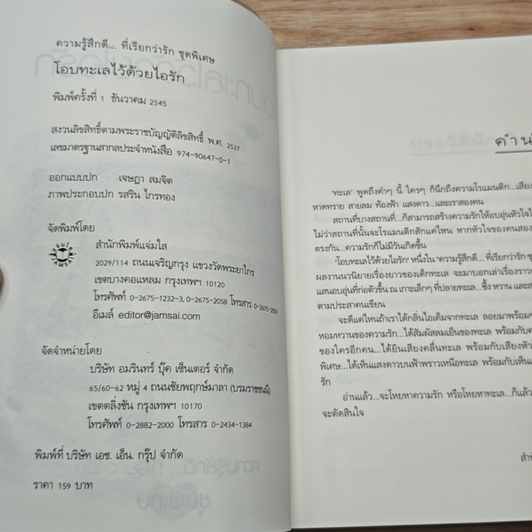 ความรู้สึกดี... ที่เรียกว่ารัก ชุดพิเศษ
โอบทะเลไว้ด้วยไอรัก
พิมพ์ครั้งที่ 1 ธันวาคม 2545
สงวนลิขสิทธิ์ตามพระราชบัญญัติลิขสิทธิ์ พ.ศ. 2537
เลขมาตรฐานสากลประจำหนังสือ 974-90647-0-1
ออกแบบปก เจษฎา สมจิต
ภาพประกอบปก รสริน ไกรทอง
จัดพิมพ์โดย
สำนักพิมพ์แจ่มใส
2029/114 ถนนเจริญกรุง แขวงวัดพระยาไกร
เขตบางคอแหลม กรุงเทพฯ 10120
โทรศัพท์ 0-2675-1232-3, 0-2675-2058 โทรสาร
อีเมล์ editor@jamsai.com
จัดจำหน่ายโดย
บริษัท อมรินทร์ บุ๊ค เซ็นเตอร์ จำกัด
65/60-62 หมู่ 4 ถนนชัยพฤกษ์มาลา (บรมราชชนนี)
เขตตลิ่งชัน กรุงเทพฯ 10170
โทรศัพท์ 0-2882-2000 โทรสาร 0-2434-1384
พิมพ์ที่ บริษัท เอช. เอ็น. กรุ๊ป จำกัด
ราคา 159 บาท
คำน
'ทะเล' พูดถึงคำๆ นี้ ใครๆ ก็นึกถึงความโรแมนติก...เสียง
หาดทราย สายลม ท้องฟ้า แสงดาว...และเราสองคน
สถานที่บางสถานที่...ก็สามารถสร้างความรักให้อบอุ่นหัวใจไ
ไม่ว่าสถานที่นั้นจะโรแมนติกสักแค่ไหน หากหัวใจของคนสอง
ตรงกัน...ความรักก็ไม่มีวันเกิดขึ้น
'โอบทะเลไว้ด้วยไอรัก' หนึ่งใน 'ความรู้สึกดี...ที่เรียกว่ารัก ชุด
ผลงานนวนิยายเรื่องยาวของเด็กทะเล จะมาบอกเล่าเรื่องราว
แสนอบอุ่นที่ก่อตัวขึ้น ณ เกาะเล็กๆ ที่ปลายทะเล...ซึ้ง หวาน และส
ตามประสาคนเขียน
จะดีแค่ไหนถ้าเราได้กลิ่นไอเค็มจากทะเล ลอยมาพร้อม
หอมหวานของความรัก...ได้สัมผัสลมเย็นของทะเล พร้อมกับ
ของใครอีกคน...ได้ยินเสียงคลื่นทะเล พร้อมกับเสียงหัว
พิเศษ...ได้เห็นแสงดาวบนฟ้าพราวเหนือทะเล พร้อมกับแสง
รัก
อ่านแล้ว...จะโหยหาความรัก หรือโหยหาทะเล...ก็แล้ว
จะตัดสินใจ
สำ